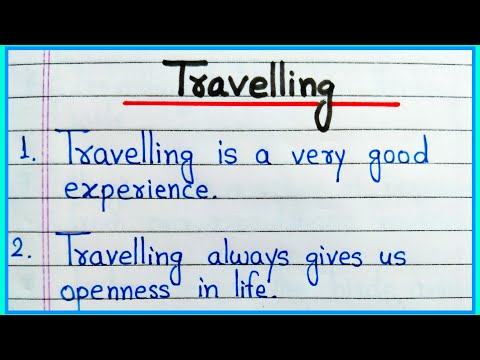 Travelling
1. Travelling is a very good
experience.
2. Travelling always gives us
openness in life.